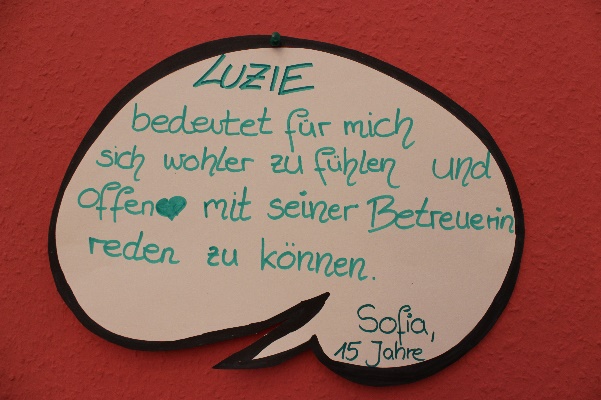 LUZIE
bedeutet für mich
sich wohler zu fühlen und
offen♥ mit seiner Betreuerin
reden zu können.
Sofia,
15 Jahre